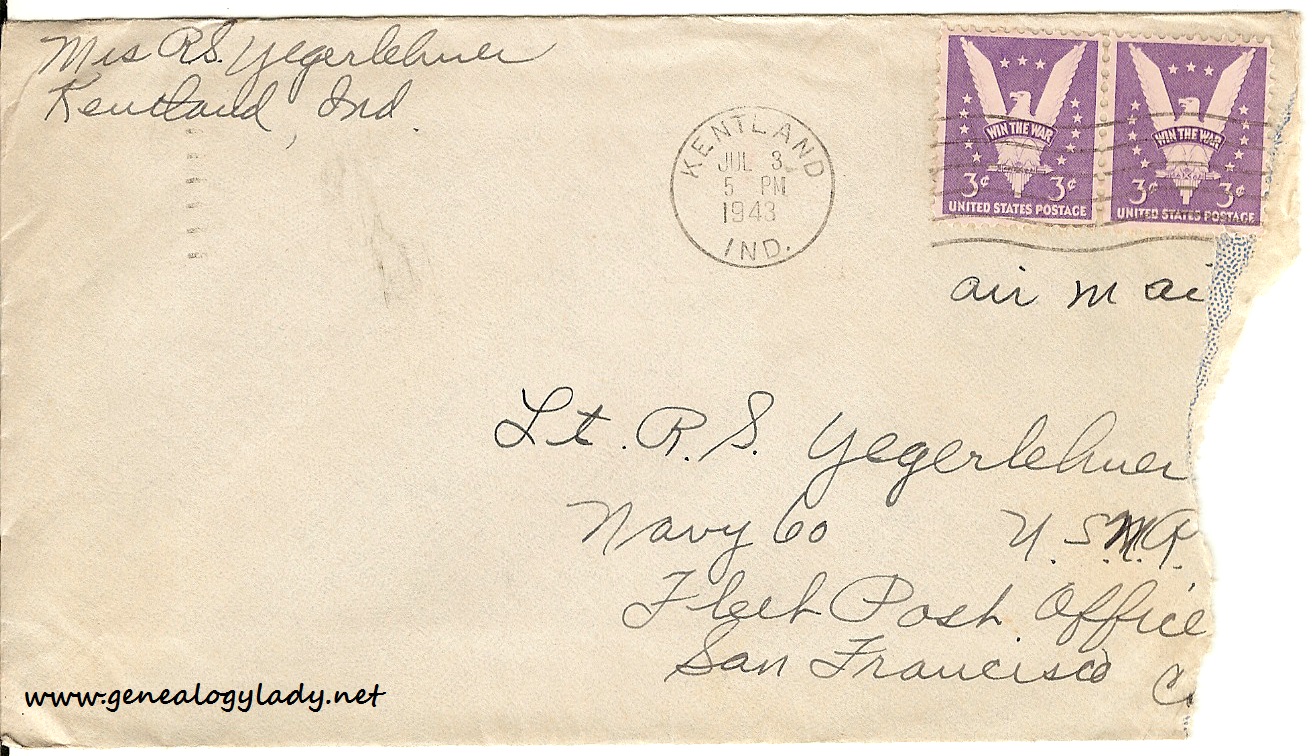 Mrs R.S. Yegerlehner
Kentland, Ind.
KENTLAND
JUL 3
5 PM
1943
IND.
WIN THE WAR
3¢ 3¢
UNITED STATES POSTAGE
WIN THE WAR
3¢ 3¢
UNITED STATES POSTAGE
air mai
Lt. R. S. Yegerlehner
Navy 60 U.S.N.R.
Fleet Post Office
San Francisco C
www.genealogylady.net